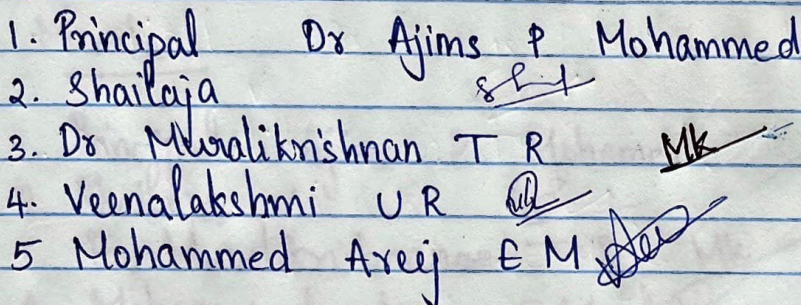 1. Principal Dr Ajims P Mohammed
2. Shailaja
3. Dr Muralikrishnan T R MK
4. Veenalakshmi U R
5 Mohammed Areej E M